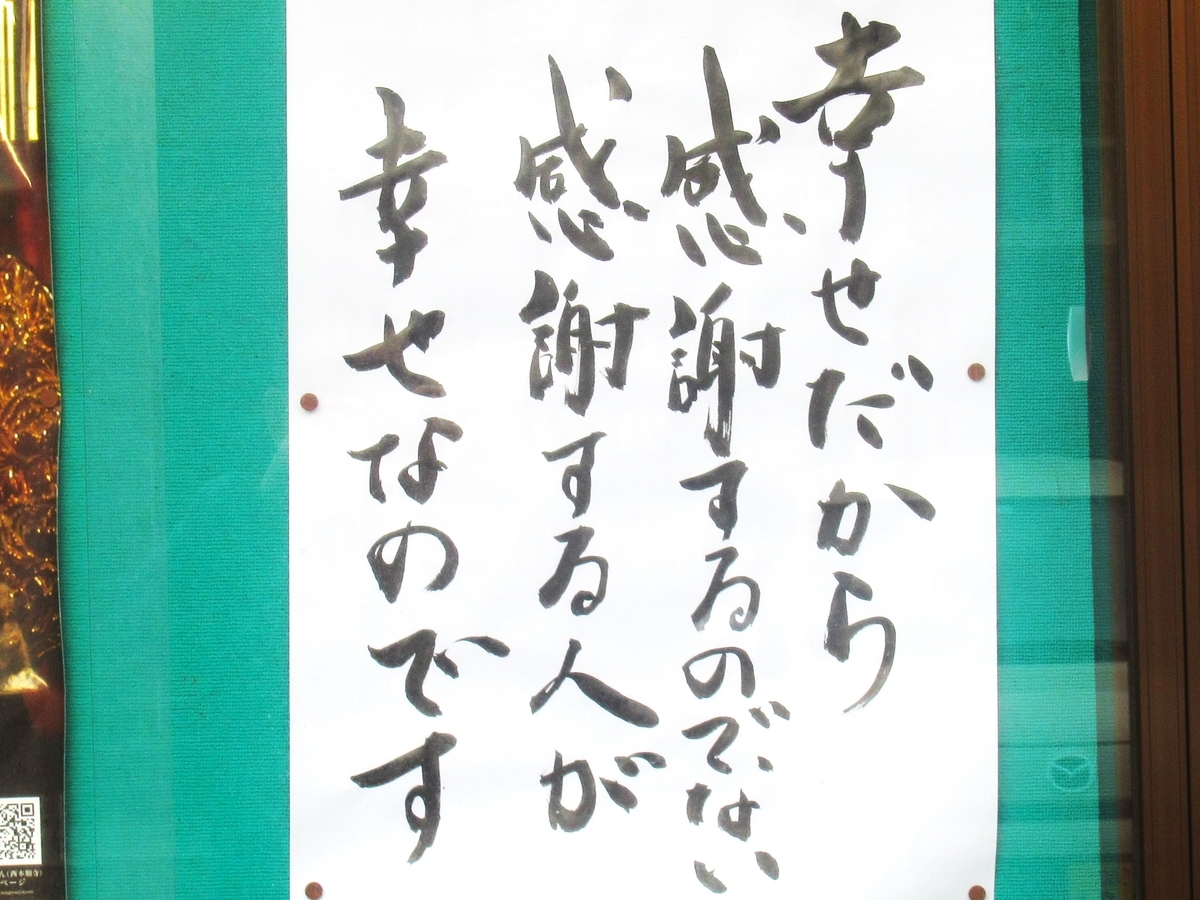 幸せだから
感謝するのでない
感謝する人が
幸せなのです
人(西本願寺)
ページ